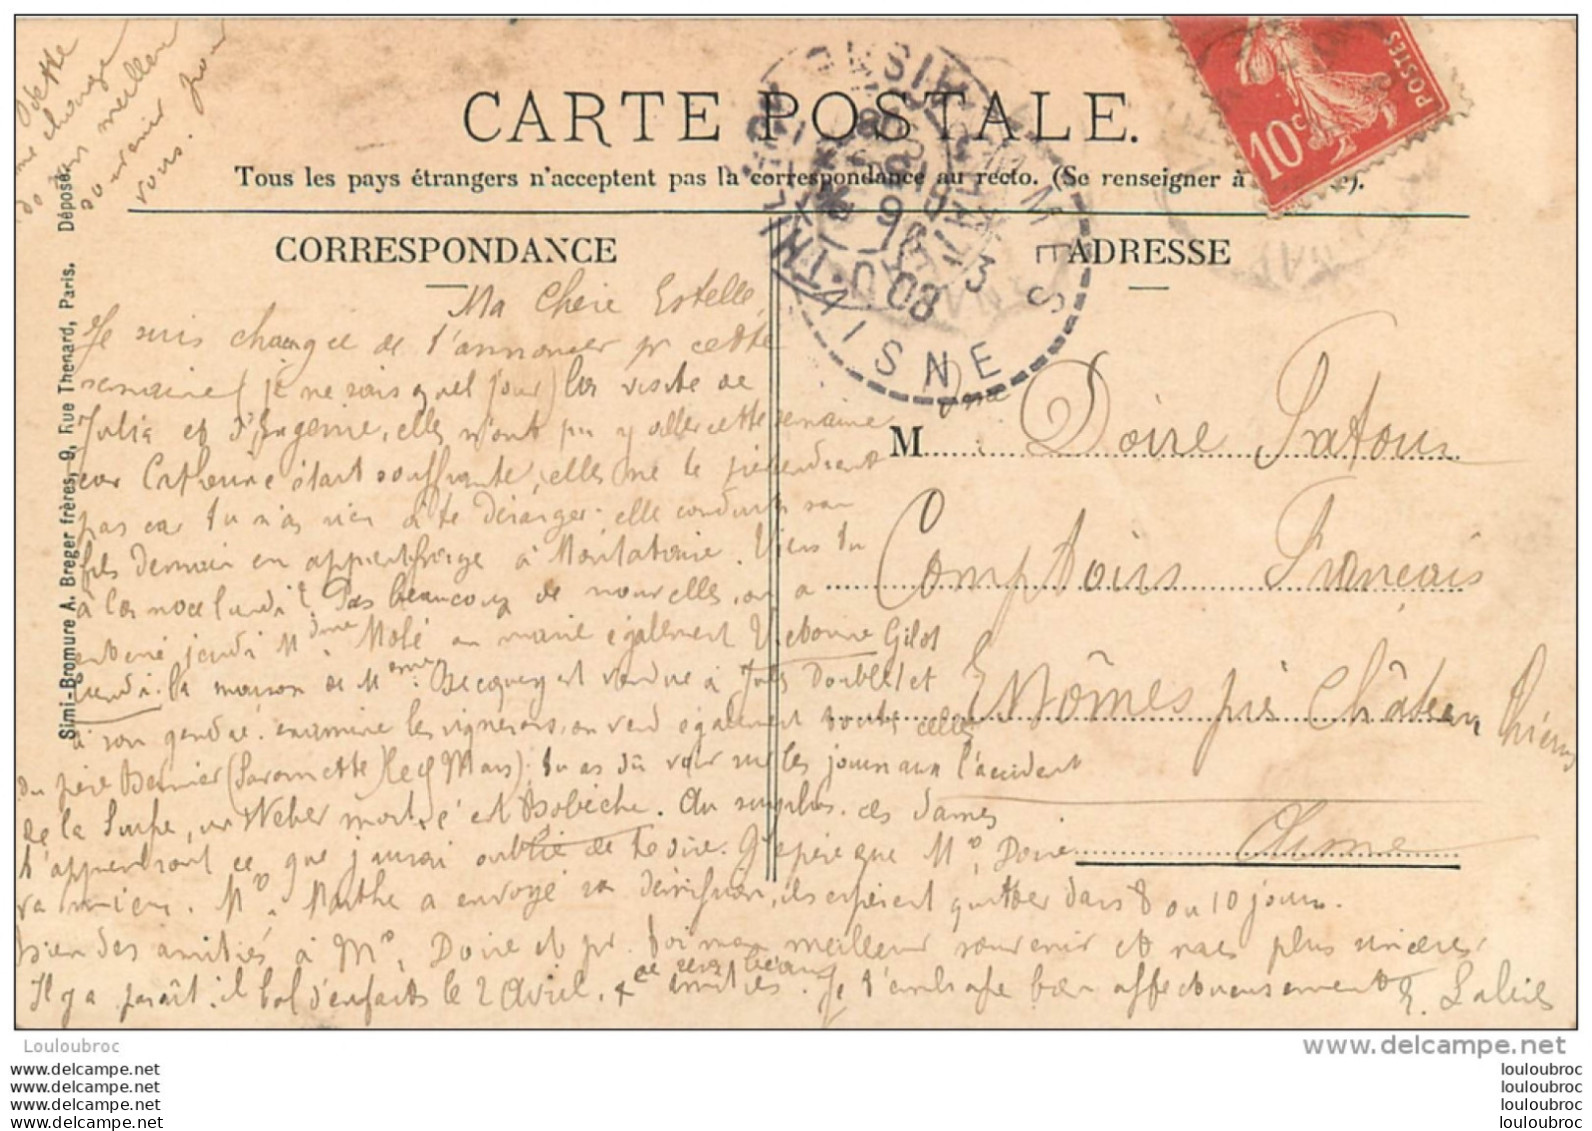 Odette
me charge
de son meilleur
souvenir pour
vous.
CARTE POSTALE.
Tous les pays étrangers n'acceptent pas la correspondance au recto. (Se renseigner à
CORRESPONDANCE
ADRESSE
Simi-Bromure A. Breger frères, 9, Rue Thenard, Paris. Déposé.
10c
POSTES
NESLES
AISNE
08
Ma Chère Estelle,
Je suis chargée de t'annoncer pr cette
semaine (je ne sais quel jour) la visite de
Julia et d'Eugénie, elles n'ont pu y aller cette semaine
car Catherine étant souffrante, elles ne te préviendront
pas car tu n'as rien à te déranger. elle conduit son
fils demain en apprentissage à Montataire. Viens tu
à la noce lundi? Pas beaucoup de nouvelles, on a
enterré jeudi Mdme Molé on marie également Giebonne Gilot
lundi. la maison de Mme Becquey est vendue à Jules Doublet et
à son gendre. on vend également toute celle
du père Bernier (Savonnette)
tu as dû voir sur les journaux l'accident
de la Weber mort, c'est Au surplus. ces dames
t'apprendront ce que j'aurai oublié de te dire. J'espère que Mr Doire
va mieux. Mr Marthe a envoyé sa démission, ils espèrent quitter dans 8 ou 10 jours.
bien des amitiés à Mr Doire et pr toi mon meilleur souvenir et mes plus sincères
amitiés. Je t'embrasse bien affectueusement E.
Il y a paraît-il bal d'enfants le 2 Avril,
M me Doire Patour
Comptoirs Français
Nesles près Château Thierry
Aisne
Louloubroc
www.delcampe.net
www.delcampe.net
www.delcampe.net
www.delcampe.net
www.delcampe.net
louloubroc
louloubroc
louloubroc
louloubroc